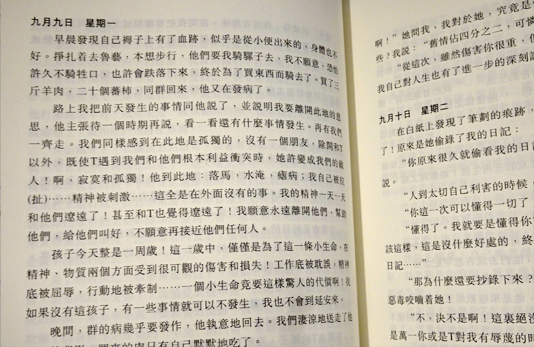 九月九日　星期一
早晨發現自己褲子上有了血跡，似乎是從小便出來的，身體也不
好。掙扎着去魯藝，本想步行，他們要我騎騾子去，我不願意，恐怕
許久不騎牲口，也許會跌落下來，終於為了買東西而騎去了。買了三
斤羊肉，二十個蕃柿，同群回來，他又在發病了。
路上我把前天發生的事情同他說了，並說明我要離開此地的意
思，他主張待一個時期再說，看一看還有什麼事情發生。再有我們
一齊走。我們共同感到在此地是孤獨的，沒有一個朋友，除開和T
以外，既使T遇到我們和他們根本利益衝突時，她許變成我們的敵
人！啊，寂寞和孤獨！他到此地：落馬，水淹，瘧病；我自己被拉
(扯)……精神被刺激……這全是在外面沒有的事。我的精神一天一天
和他們遼遠了！甚至和T也覺得遼遠了！我願意永遠離開他們，幫助
他們，給他們叫好，不願意再接近他們任何人。
孩子今天整是一周歲！這一歲中，僅僅是為了這一條小生命，在
精神、物質兩個方面受到很可觀的傷害和損失！工作底被耽誤，精神
底被屈辱，行動地被牽制……一個小生命竟要這樣驚人的代價啊！我
如果沒有這孩子，有一些事情就可以不發生，我也不會到延安來，
晚間，群的病幾乎要發作，他執意地回去。我們淒涼地送走了他
回來的肉只有自己默默地吃了。
啊！”她問我，我對於她，究竟是
些？我說：“舊情佔四分之二，可憐
“從這次，雖然傷害你很重，但
我自己對人生也有了進一步的深刻認
九月十日　星期二
在白紙上發現了筆劃的痕跡，
了！原來是她偷錄了我的日記：
“你原來很久就偷看我的日
說。
“人到太切自己利害的時候，
“你這一次可以懂得一切了
“懂得了。我就要是懂得你
該這樣，這是沒什麼好處的，終
日記……”
“那為什麼還要抄錄下來？
惡毒咬嚙着她！
“不，決不是啊！這裏絕沒
是萬一你或是T對我有辱蔑的時